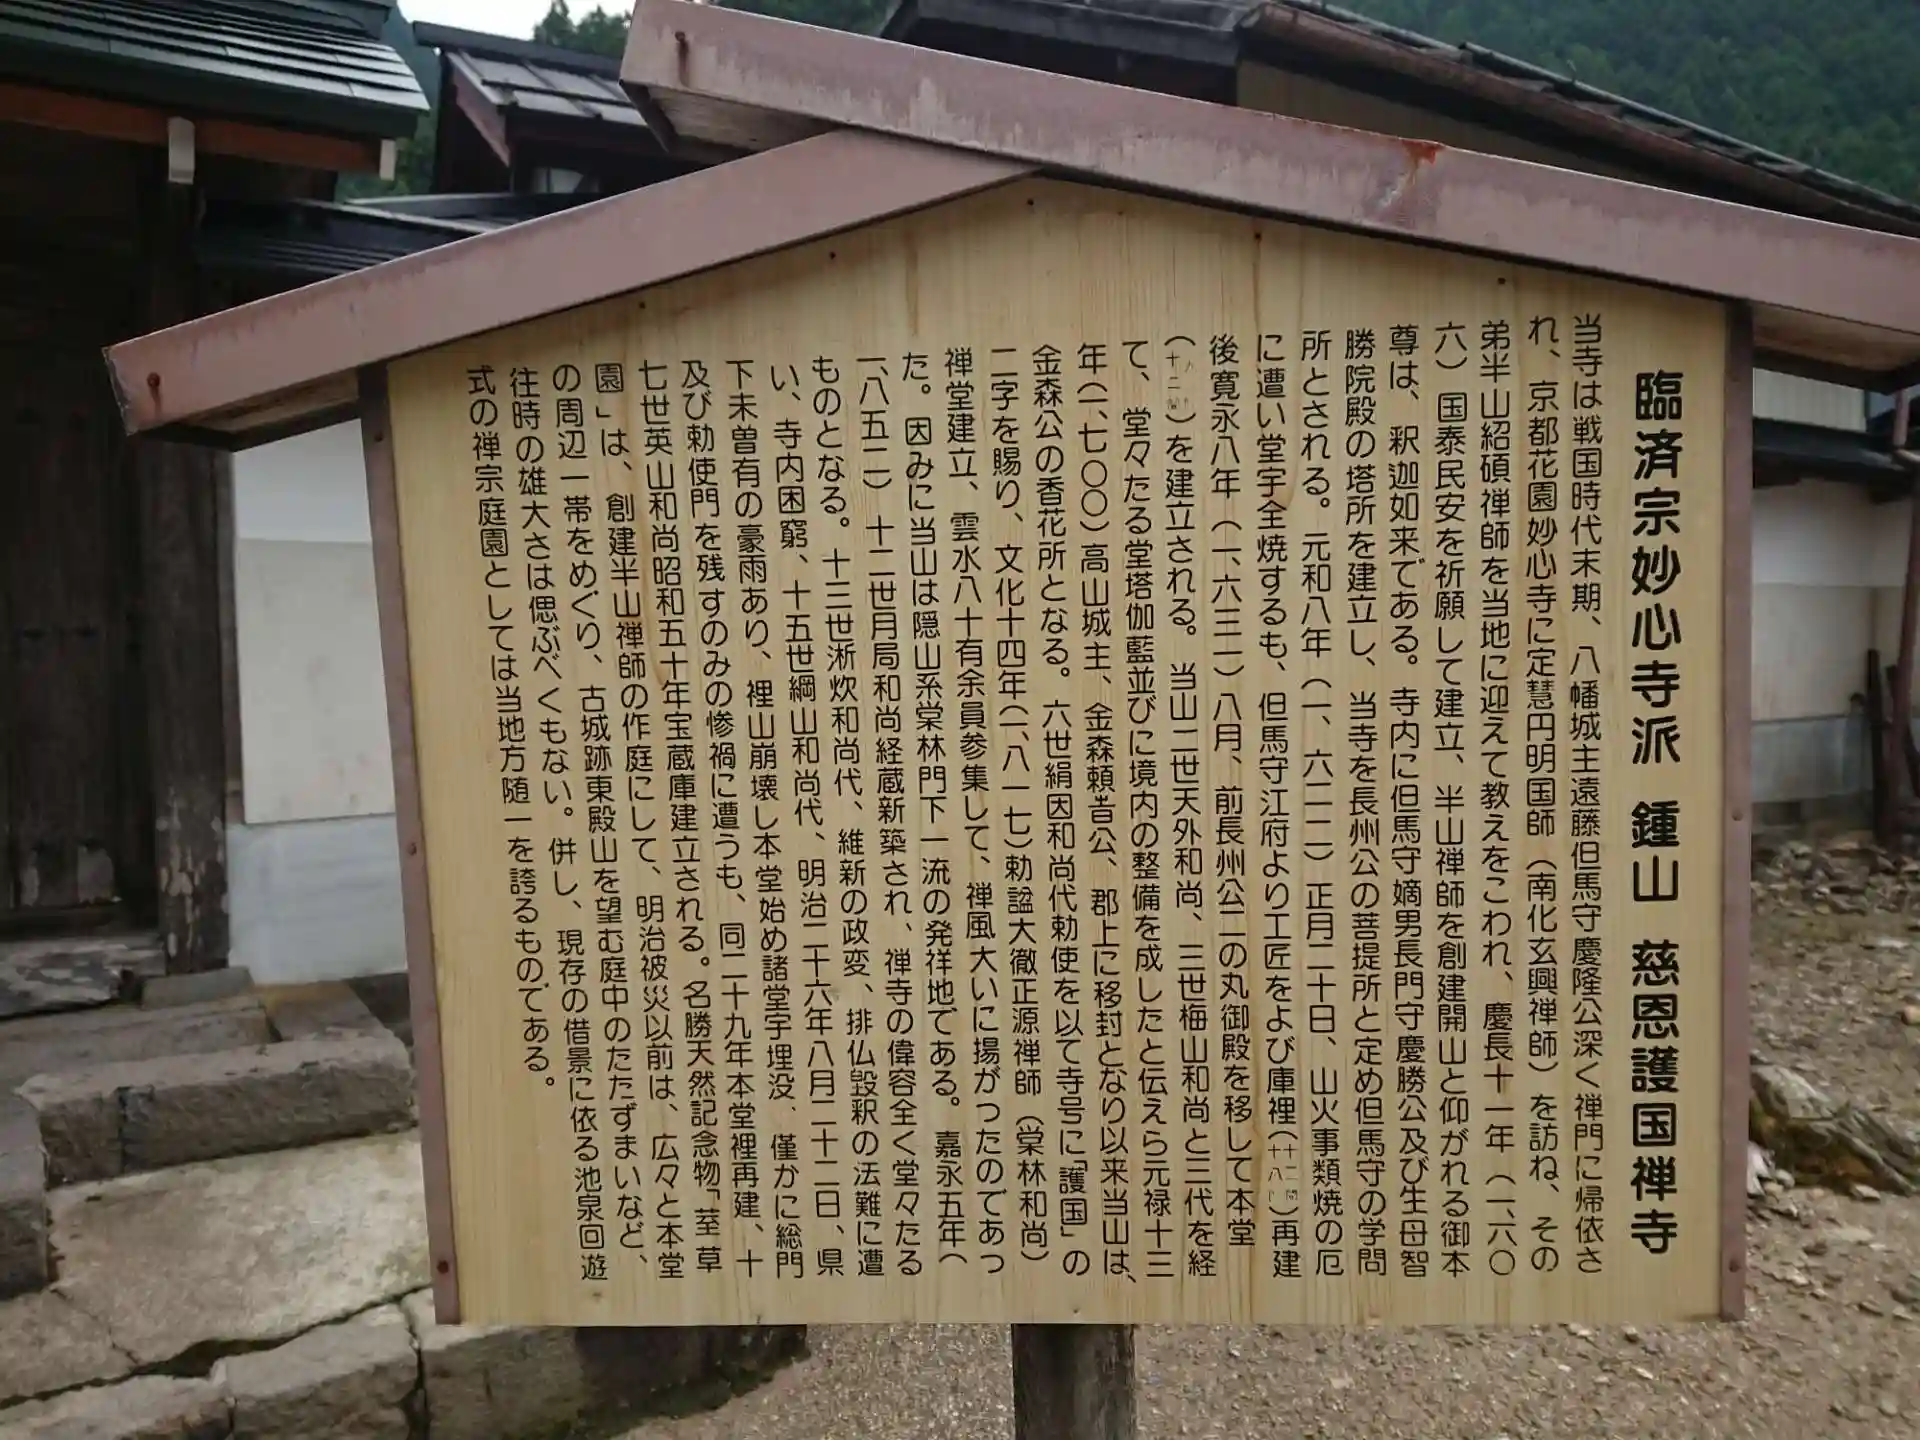 臨済宗妙心寺派 鍾山 慈恩護国禅寺
当寺は戦国時代末期、八幡城主遠藤但馬守慶隆公深く禅門に帰依さ
れ、京都花園妙心寺に定慧円明国師（南化玄興禅師）を訪ね、その
弟半山紹碩禅師を当地に迎えて教えをこわれ、慶長十一年（一、六〇
六）国泰民安を祈願して建立、半山禅師を創建開山と仰がれる御本
尊は、釈迦如来である。寺内に但馬守嫡男長門守慶勝公及び生母智
勝院殿の塔所を建立し、当寺を長州公の菩提所と定め但馬守の学問
所とされる。元和八年（一、六二二）正月二十日、山火事類焼の厄
に遭い堂宇全焼するも、但馬守江府より工匠をよび庫裡（十二間十八）再建
後寛永八年（一、六三一）八月、前長州公二の丸御殿を移して本堂
（十二間）を建立される。当山二世天外和尚、三世梅山和尚と三代を経
て、堂々たる堂塔伽藍並びに境内の整備を成したと伝えら元禄十三
年（一、七〇〇）高山城主、金森頼旹公、郡上に移封となり以来当山は、
金森公の香花所となる。六世絹因和尚代勅使を以て寺号に「護国」の
二字を賜り、文化十四年（一、八一七）勅諡大徹正源禅師（棠林和尚）
禅堂建立、雲水八十有余員参集して、禅風大いに揚がったのであっ
た。因みに当山は隠山系棠林門下一流の発祥地である。嘉永五年（
一、八五二）十二世月局和尚経蔵新築され、禅寺の偉容全く堂々たる
ものとなる。十三世淅炊和尚代、維新の政変、排仏毀釈の法難に遭
い、寺内困窮、十五世綱山和尚代、明治二十六年八月二十二日、県
下未曽有の豪雨あり、裡山崩壊し本堂始め諸堂宇埋没、僅かに総門
及び勅使門を残すのみの惨禍に遭うも、同二十九年本堂裡再建、十
七世英山和尚昭和五十年宝蔵庫建立される。名勝天然記念物「荎草
園」は、創建半山禅師の作庭にして、明治被災以前は、広々と本堂
の周辺一帯をめぐり、古城跡東殿山を望む庭中のたたずまいなど、
往時の雄大さは偲ぶべくもない。併し、現存の借景に依る池泉回遊
式の禅宗庭園としては当地方随一を誇るものである。